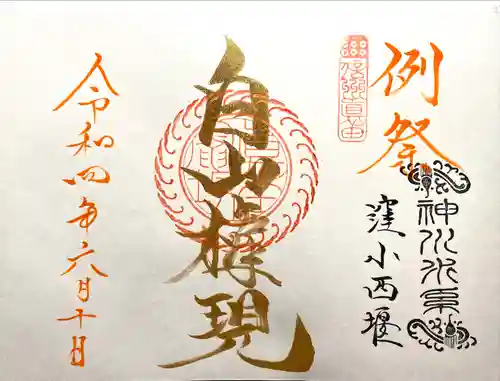 例祭
神川水系
窪小西堰
白山権現
令和四年六月十日